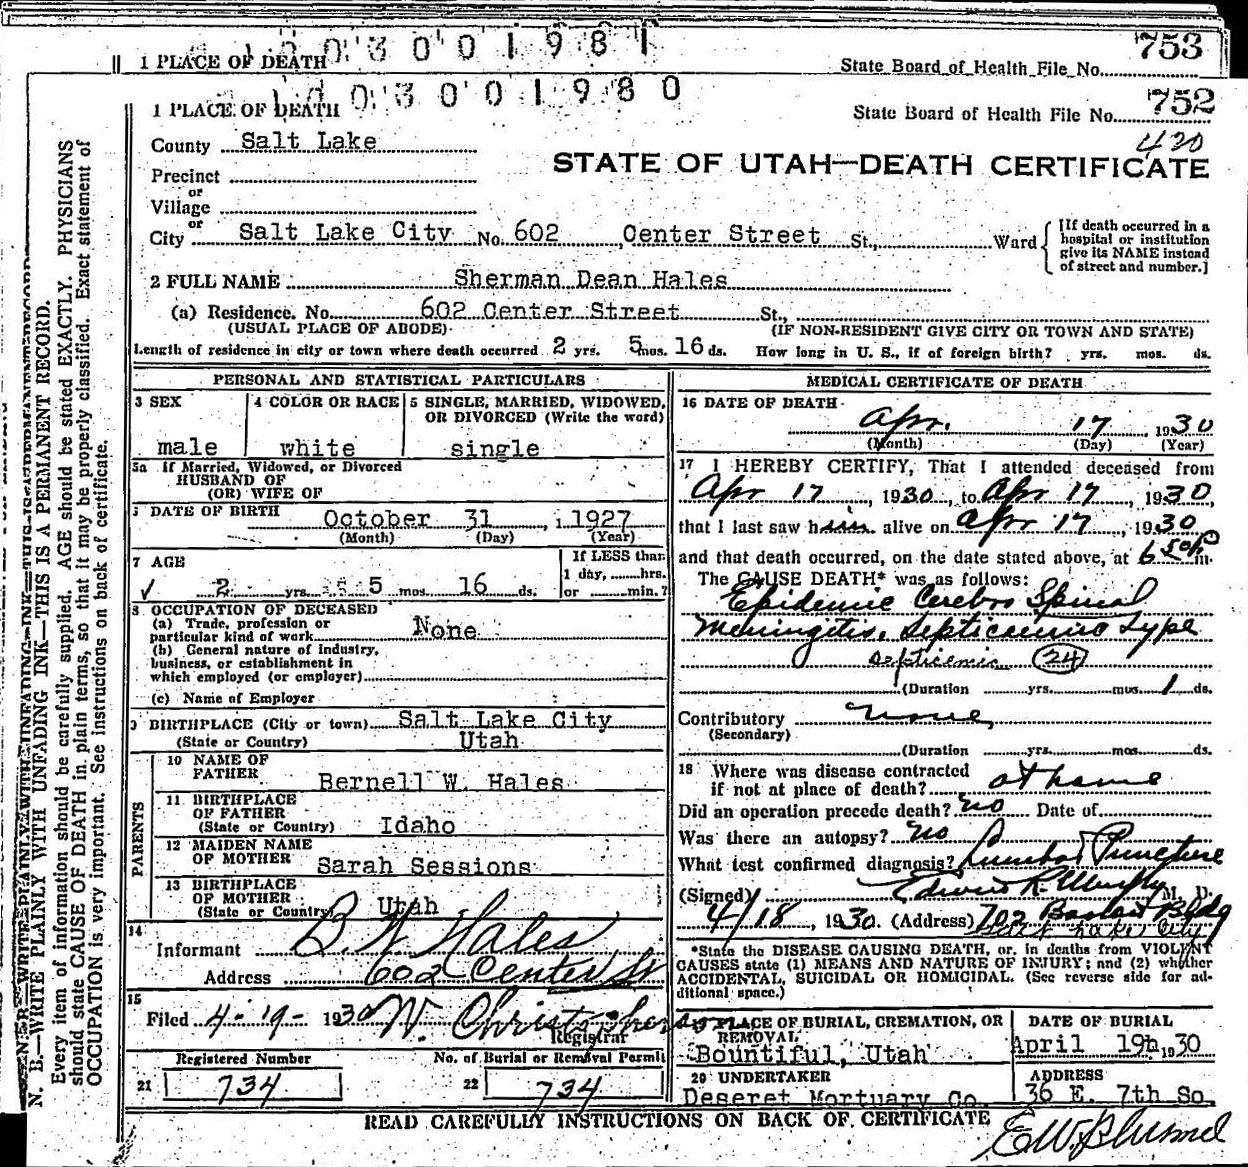 1 PLACE OF DEATH 03001981 State Board of Health File No. 753
1 PLACE OF DEATH 03001980 State Board of Health File No. 752
County Salt Lake 420
STATE OF UTAH—DEATH CERTIFICATE
Precinct
or
Village
or
City Salt Lake City No. 602 Center Street St., Ward
[If death occurred in a hospital or institution give its NAME instead of street and number.]
2 FULL NAME Sherman Dean Hales
(a) Residence. No. 602 Center Street St.,
(USUAL PLACE OF ABODE) (IF NON-RESIDENT GIVE CITY OR TOWN AND STATE)
Length of residence in city or town where death occurred 2 yrs. 5 mos. 16 ds. How long in U. S., if of foreign birth? yrs. mos. ds.
PERSONAL AND STATISTICAL PARTICULARS
3 SEX 4 COLOR OR RACE 5 SINGLE, MARRIED, WIDOWED,
OR DIVORCED (Write the word)
male white single
5a If Married, Widowed, or Divorced
HUSBAND OF
(OR) WIFE OF
DATE OF BIRTH October 31, 1927
(Month) (Day) (Year)
7 AGE If LESS than
1 day, hrs.
2 yrs. 5 mos. 16 ds. or min.?
8 OCCUPATION OF DECEASED
(a) Trade, profession or
particular kind of work None
(b) General nature of industry,
business, or establishment in
which employed (or employer)
(c) Name of Employer
9 BIRTHPLACE (City or town) Salt Lake City
(State or Country) Utah
PARENTS
10 NAME OF
FATHER Bernell W. Hales
11 BIRTHPLACE
OF FATHER
(State or Country) Idaho
12 MAIDEN NAME
OF MOTHER Sarah Sessions
13 BIRTHPLACE
OF MOTHER
(State or Country) Utah
14
Informant B. W. Hales
Address 602 Center St
15
Filed 4-19- 1930 W. Christophersen
Registrar
Registered Number No. of Burial or Removal Permit
21 734 22 734
MEDICAL CERTIFICATE OF DEATH
16 DATE OF DEATH
Apr. 17, 1930
(Month) (Day) (Year)
17 I HEREBY CERTIFY, That I attended deceased from
Apr 17, 1930, to Apr 17, 1930,
that I last saw him alive on Apr 17, 1930
and that death occurred, on the date stated above, at 6 50 P m.
The CAUSE DEATH* was as follows:
Epidemic Cerebro Spinal
Meningitis, Septicaemic Type
Septicemic 24
(Duration yrs. mos. 1 ds.
Contributory none
(Secondary)
(Duration yrs. mos. ds.
18 Where was disease contracted
if not at place of death? at home
Did an operation precede death? no Date of
Was there an autopsy? no
What test confirmed diagnosis? Lumbar Puncture
(Signed) Edwin R. Murphy M. D.
4/18, 1930. (Address) 702 Boston Bldg
Salt Lake City
*State the DISEASE CAUSING DEATH, or, in deaths from VIOLENT
CAUSES state (1) MEANS AND NATURE OF INJURY; and (2) whether
ACCIDENTAL, SUICIDAL OR HOMICIDAL. (See reverse side for ad-
ditional space.)
PLACE OF BURIAL, CREMATION, OR DATE OF BURIAL
REMOVAL
Bountiful, Utah April 19th, 1930
20 UNDERTAKER ADDRESS
Deseret Mortuary Co. 36 E. 7th So.
READ CAREFULLY INSTRUCTIONS ON BACK OF CERTIFICATE
N. B.—WRITE PLAINLY WITH UNFADING INK—THIS IS A PERMANENT RECORD.
Every item of information should be carefully supplied. AGE should be stated EXACTLY. PHYSICIANS
should state CAUSE OF DEATH in plain terms, so that it may be properly classified. Exact statement of
OCCUPATION is very important. See instructions on back of certificate.